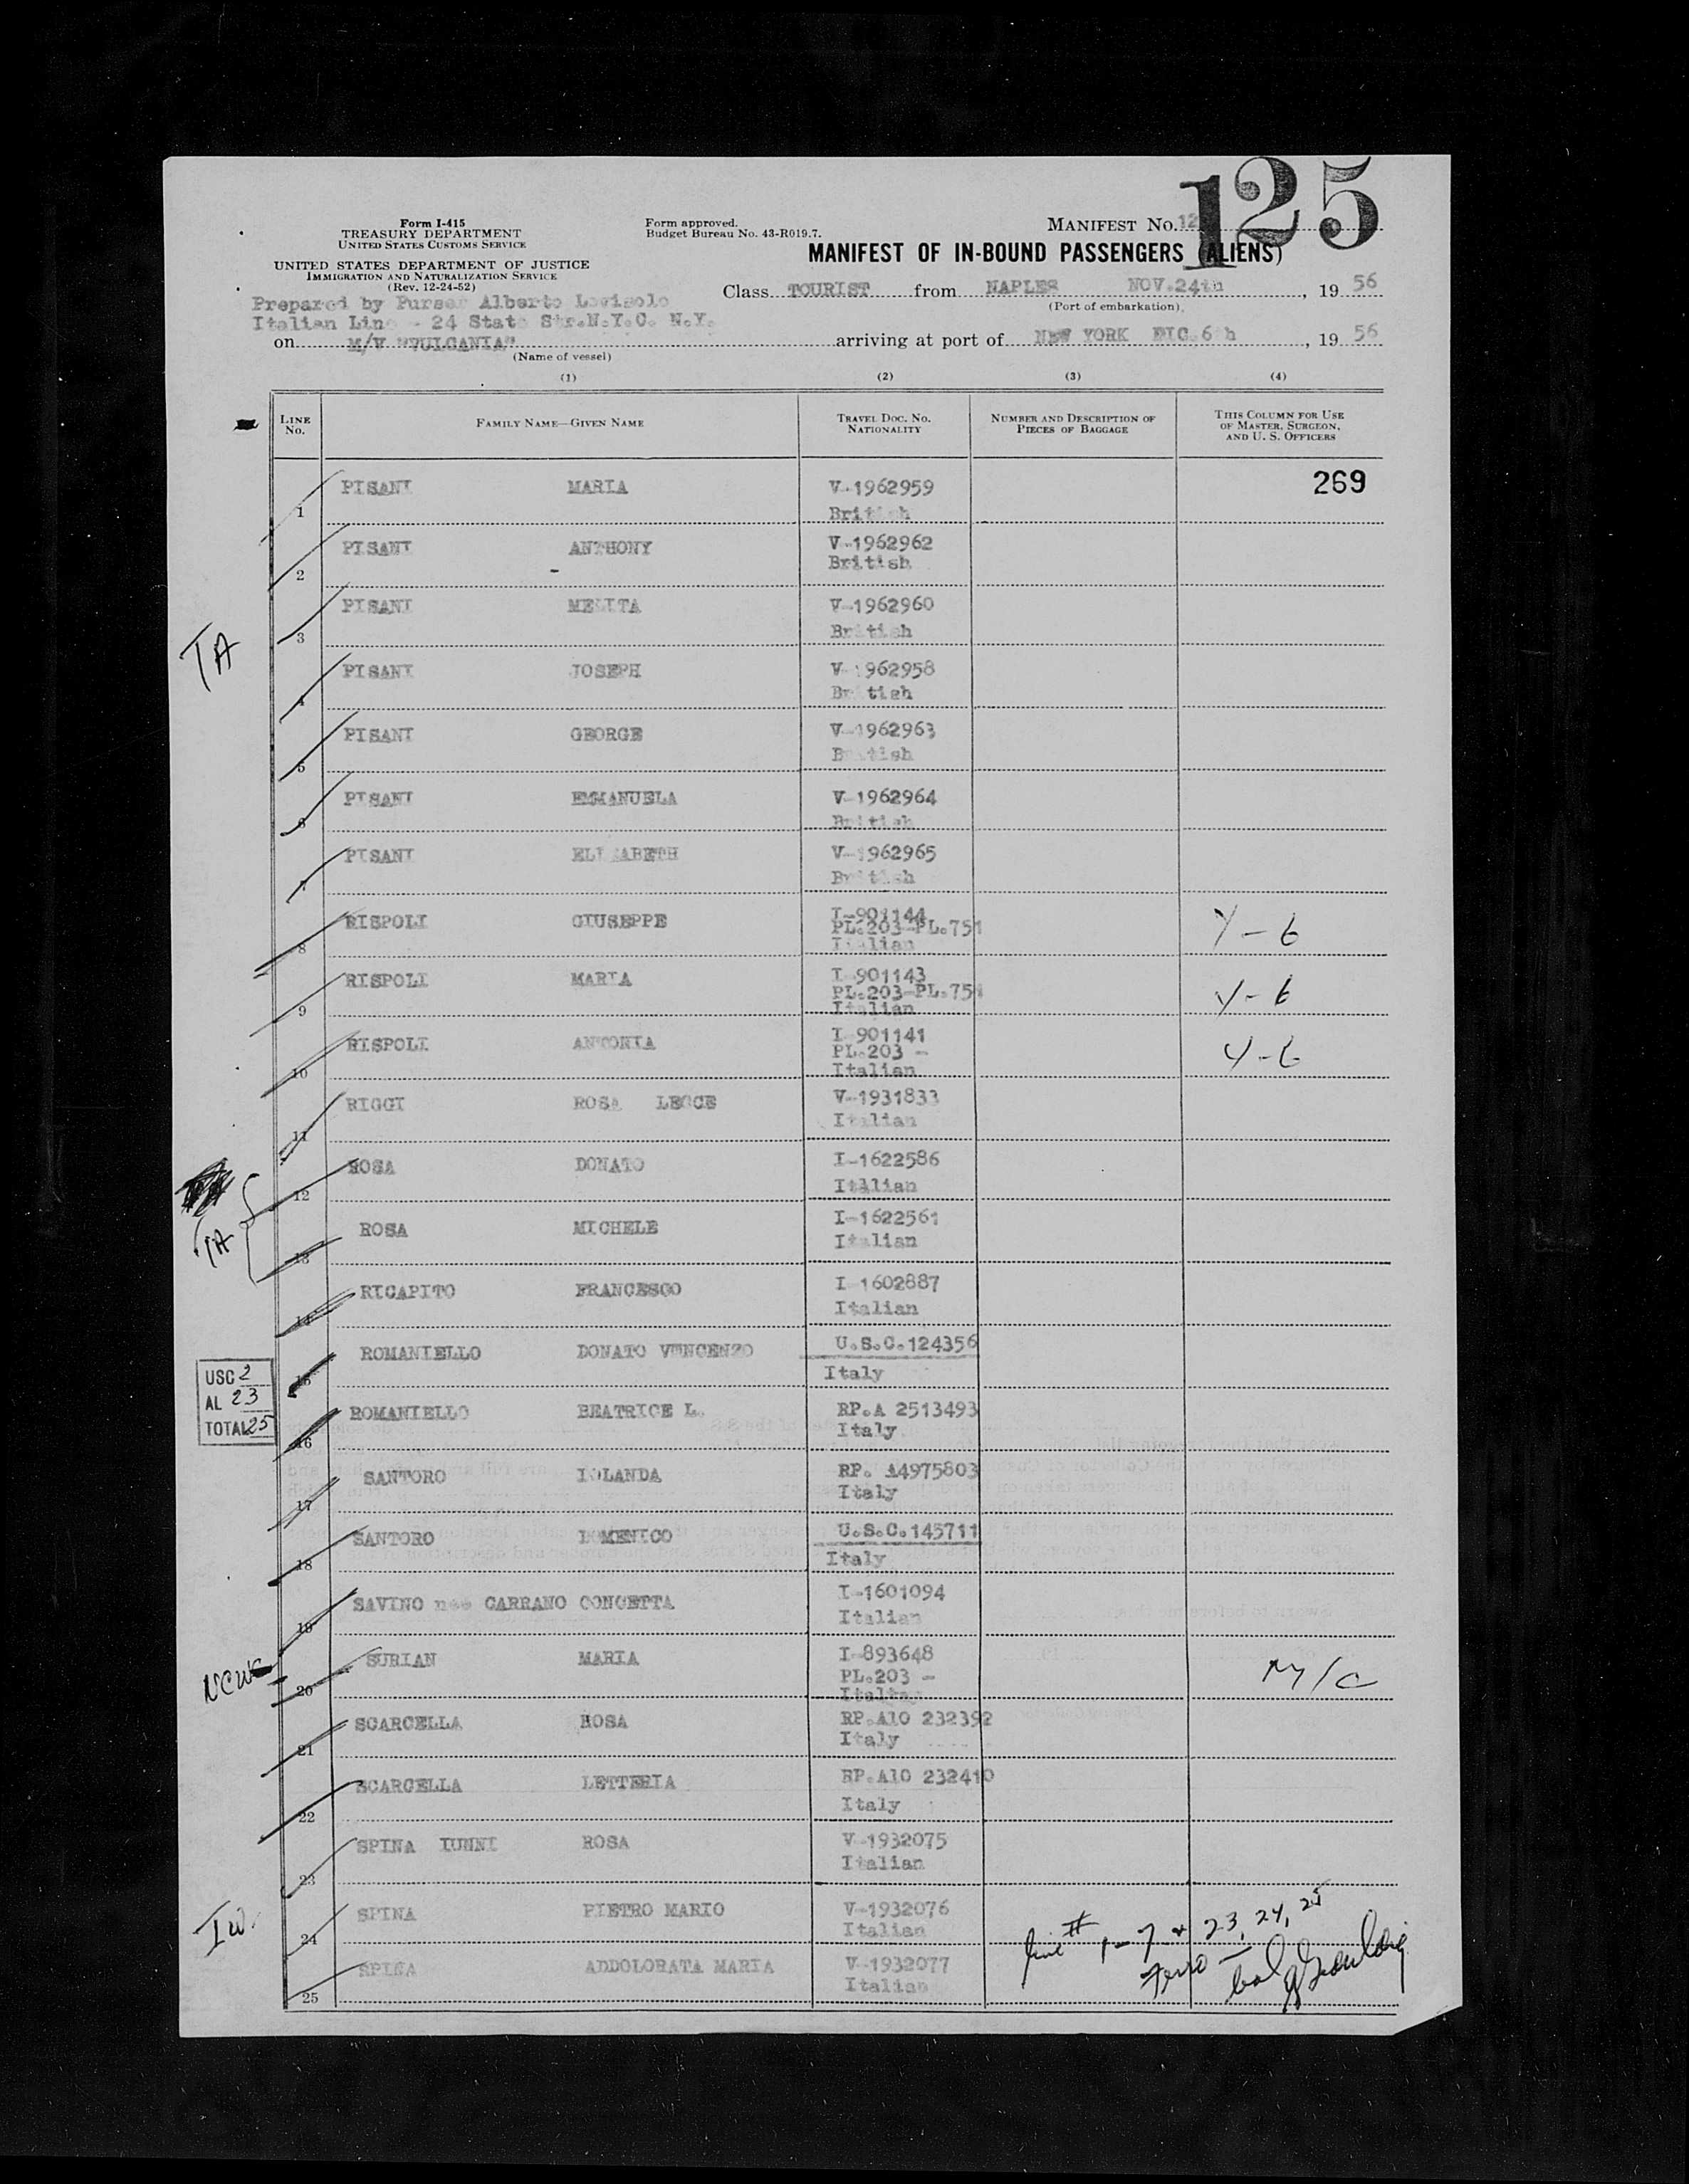 125
Form I-415
TREASURY DEPARTMENT
UNITED STATES CUSTOMS SERVICE
UNITED STATES DEPARTMENT OF JUSTICE
IMMIGRATION AND NATURALIZATION SERVICE
(Rev. 12-24-52)
Form approved.
Budget Bureau No. 43-R019.7.
MANIFEST NO. 12
MANIFEST OF IN-BOUND PASSENGERS (ALIENS)
Prepared by Purser Alberto
Italian Line - 24 State Str.N.Y.C. N.Y.
Class TOURIST from NAPLES NOV.24th, 19 56
(Port of embarkation),
on M/V "VULCANIA" arriving at port of NEW YORK DIC.6th, 19 56
(Name of vessel)
(1) (2) (3) (4)
LINE NO. FAMILY NAME—GIVEN NAME TRAVEL DOC. NO. NATIONALITY NUMBER AND DESCRIPTION OF PIECES OF BAGGAGE THIS COLUMN FOR USE OF MASTER, SURGEON, AND U. S. OFFICERS
269
1 PISANI MARIA V-1962959
British
2 PISANI ANTHONY V-1962962
British
3 PISANI MELITA V-1962960
British
TA
4 PISANI JOSEPH V-1962958
British
5 PISANI GEORGE V-1962963
British
6 PISANI EMMANUELA V-1962964
British
7 PISANI ELIZABETH V-1962965
British
8 RISPOLI GIUSEPPE I-901144
PL.203-PL.751
Italian
Y-6
9 RISPOLI MARIA I-901143
PL.203-PL.751
Italian
Y-6
10 RISPOLI ANTONIA I-901141
PL.203 -
Italian
Y-6
11 RIGGI ROSA LECCE V-1931833
Italian
12 ROSA DONATO I-1622586
Italian
TA
13 ROSA MICHELE I-1622561
Italian
14 RICAPITO FRANCESCO I-1602887
Italian
15 ROMANIELLO DONATO VINCENZO U.S.C.124356
Italy
USC 2
AL 23
TOTAL 25
16 ROMANIELLO BEATRICE L. RP.A 2513493
Italy
17 SANTORO IOLANDA RP. A4975803
Italy
18 SANTORO DOMENICO U.S.C.145711
Italy
19 SAVINO nee CARRANO CONCETTA I-1601094
Italian
20 SURIAN MARIA I-893648
PL.203 -
Italian
M/C
21 SCARCELLA ROSA RP.A10 232392
Italy
22 SCARCELLA LETTERIA RP.A10 232410
Italy
23 SPINA IUNNI ROSA V-1932075
Italian
24 SPINA PIETRO MARIO V-1932076
Italian
25 SPINA ADDOLORATA MARIA V-1932077
Italian
line # 1-7 & 23, 24, 25